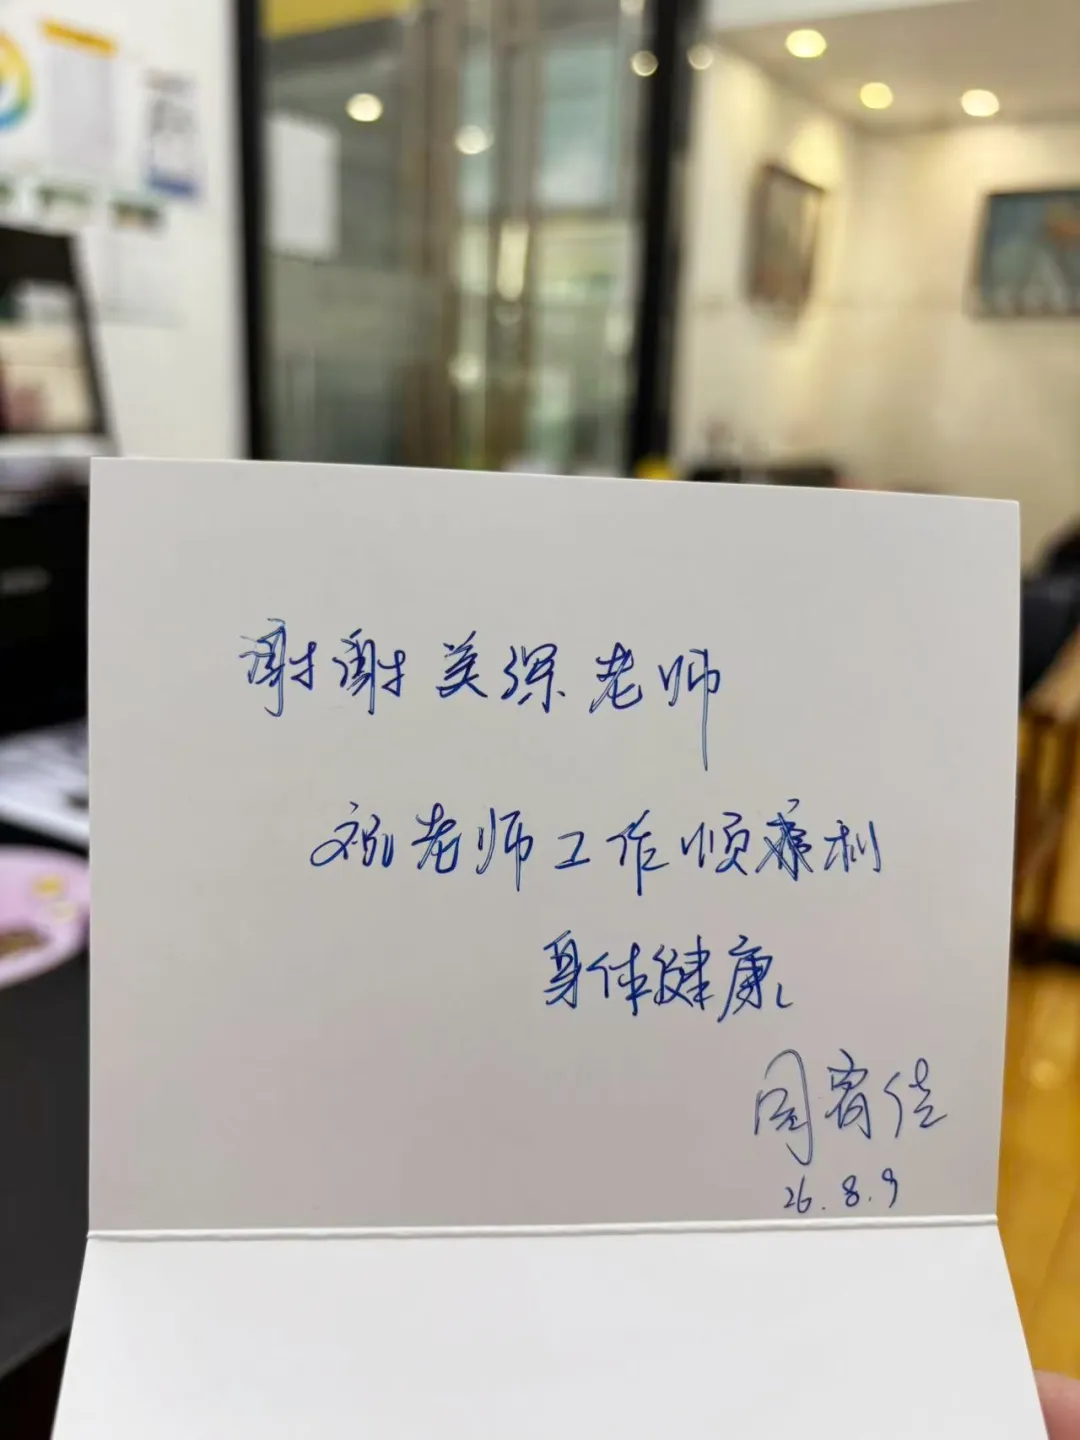 谢谢美深老师
祝老师工作顺利
身体健康
周裔佳
26.8.9